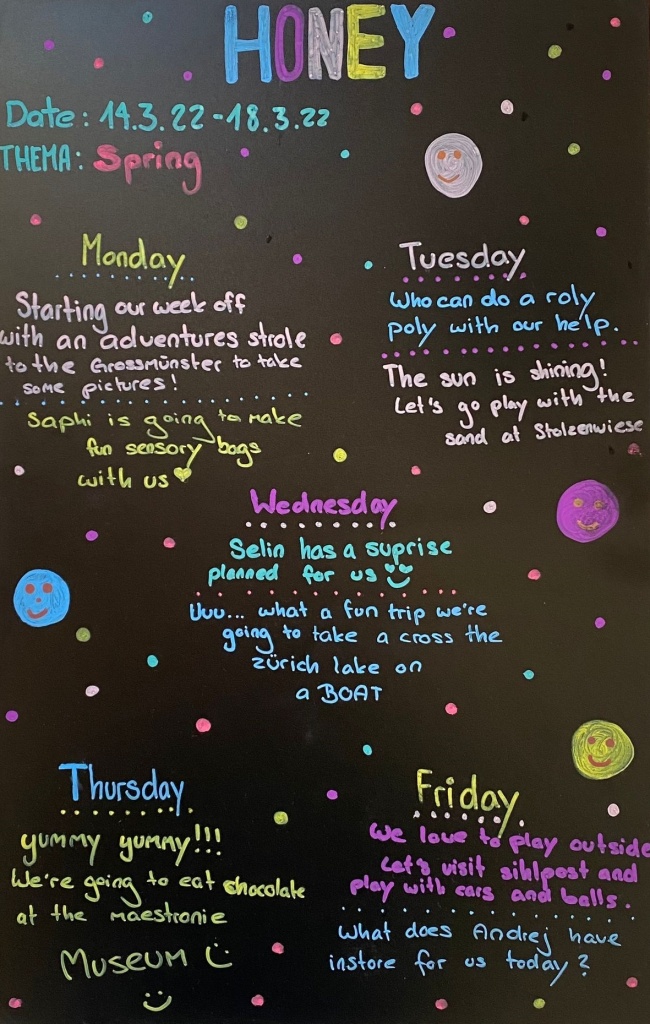 HONEY
Date: 14.3.22-18.3.22
THEMA: Spring
Monday
Starting our week off
with an adventures strole
to the Grossmünster to take
some pictures!
Saphi is going to make
fun sensory bags
with us
Tuesday
Who can do a roly
poly with our help.
The sun is shining!
Let's go play with the
sand at Stolzenwiese
Wednesday
Selin has a suprise
planned for us
Uuu... what a fun trip we're
going to take a cross the
zürich lake on
a BOAT
Thursday
yummy yummy!!!
We're going to eat chocolate
at the maestronie
Museum
Friday
We love to play outside
Let's visit sihlpost and
play with cars and balls.
What does Andrej have
instore for us today?